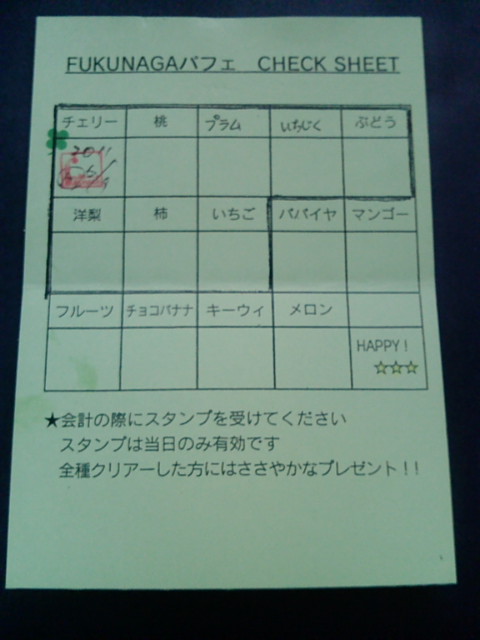 FUKUNAGAパフェ CHECK SHEET
チェリー 桃 プラム いちじく ぶどう
2011
洋梨 柿 いちご パパイヤ マンゴー
フルーツ チョコバナナ キーウィ メロン
HAPPY!
☆☆☆
★会計の際にスタンプを受けてください
スタンプは当日のみ有効です
全種クリアーした方にはささやかなプレゼント!!